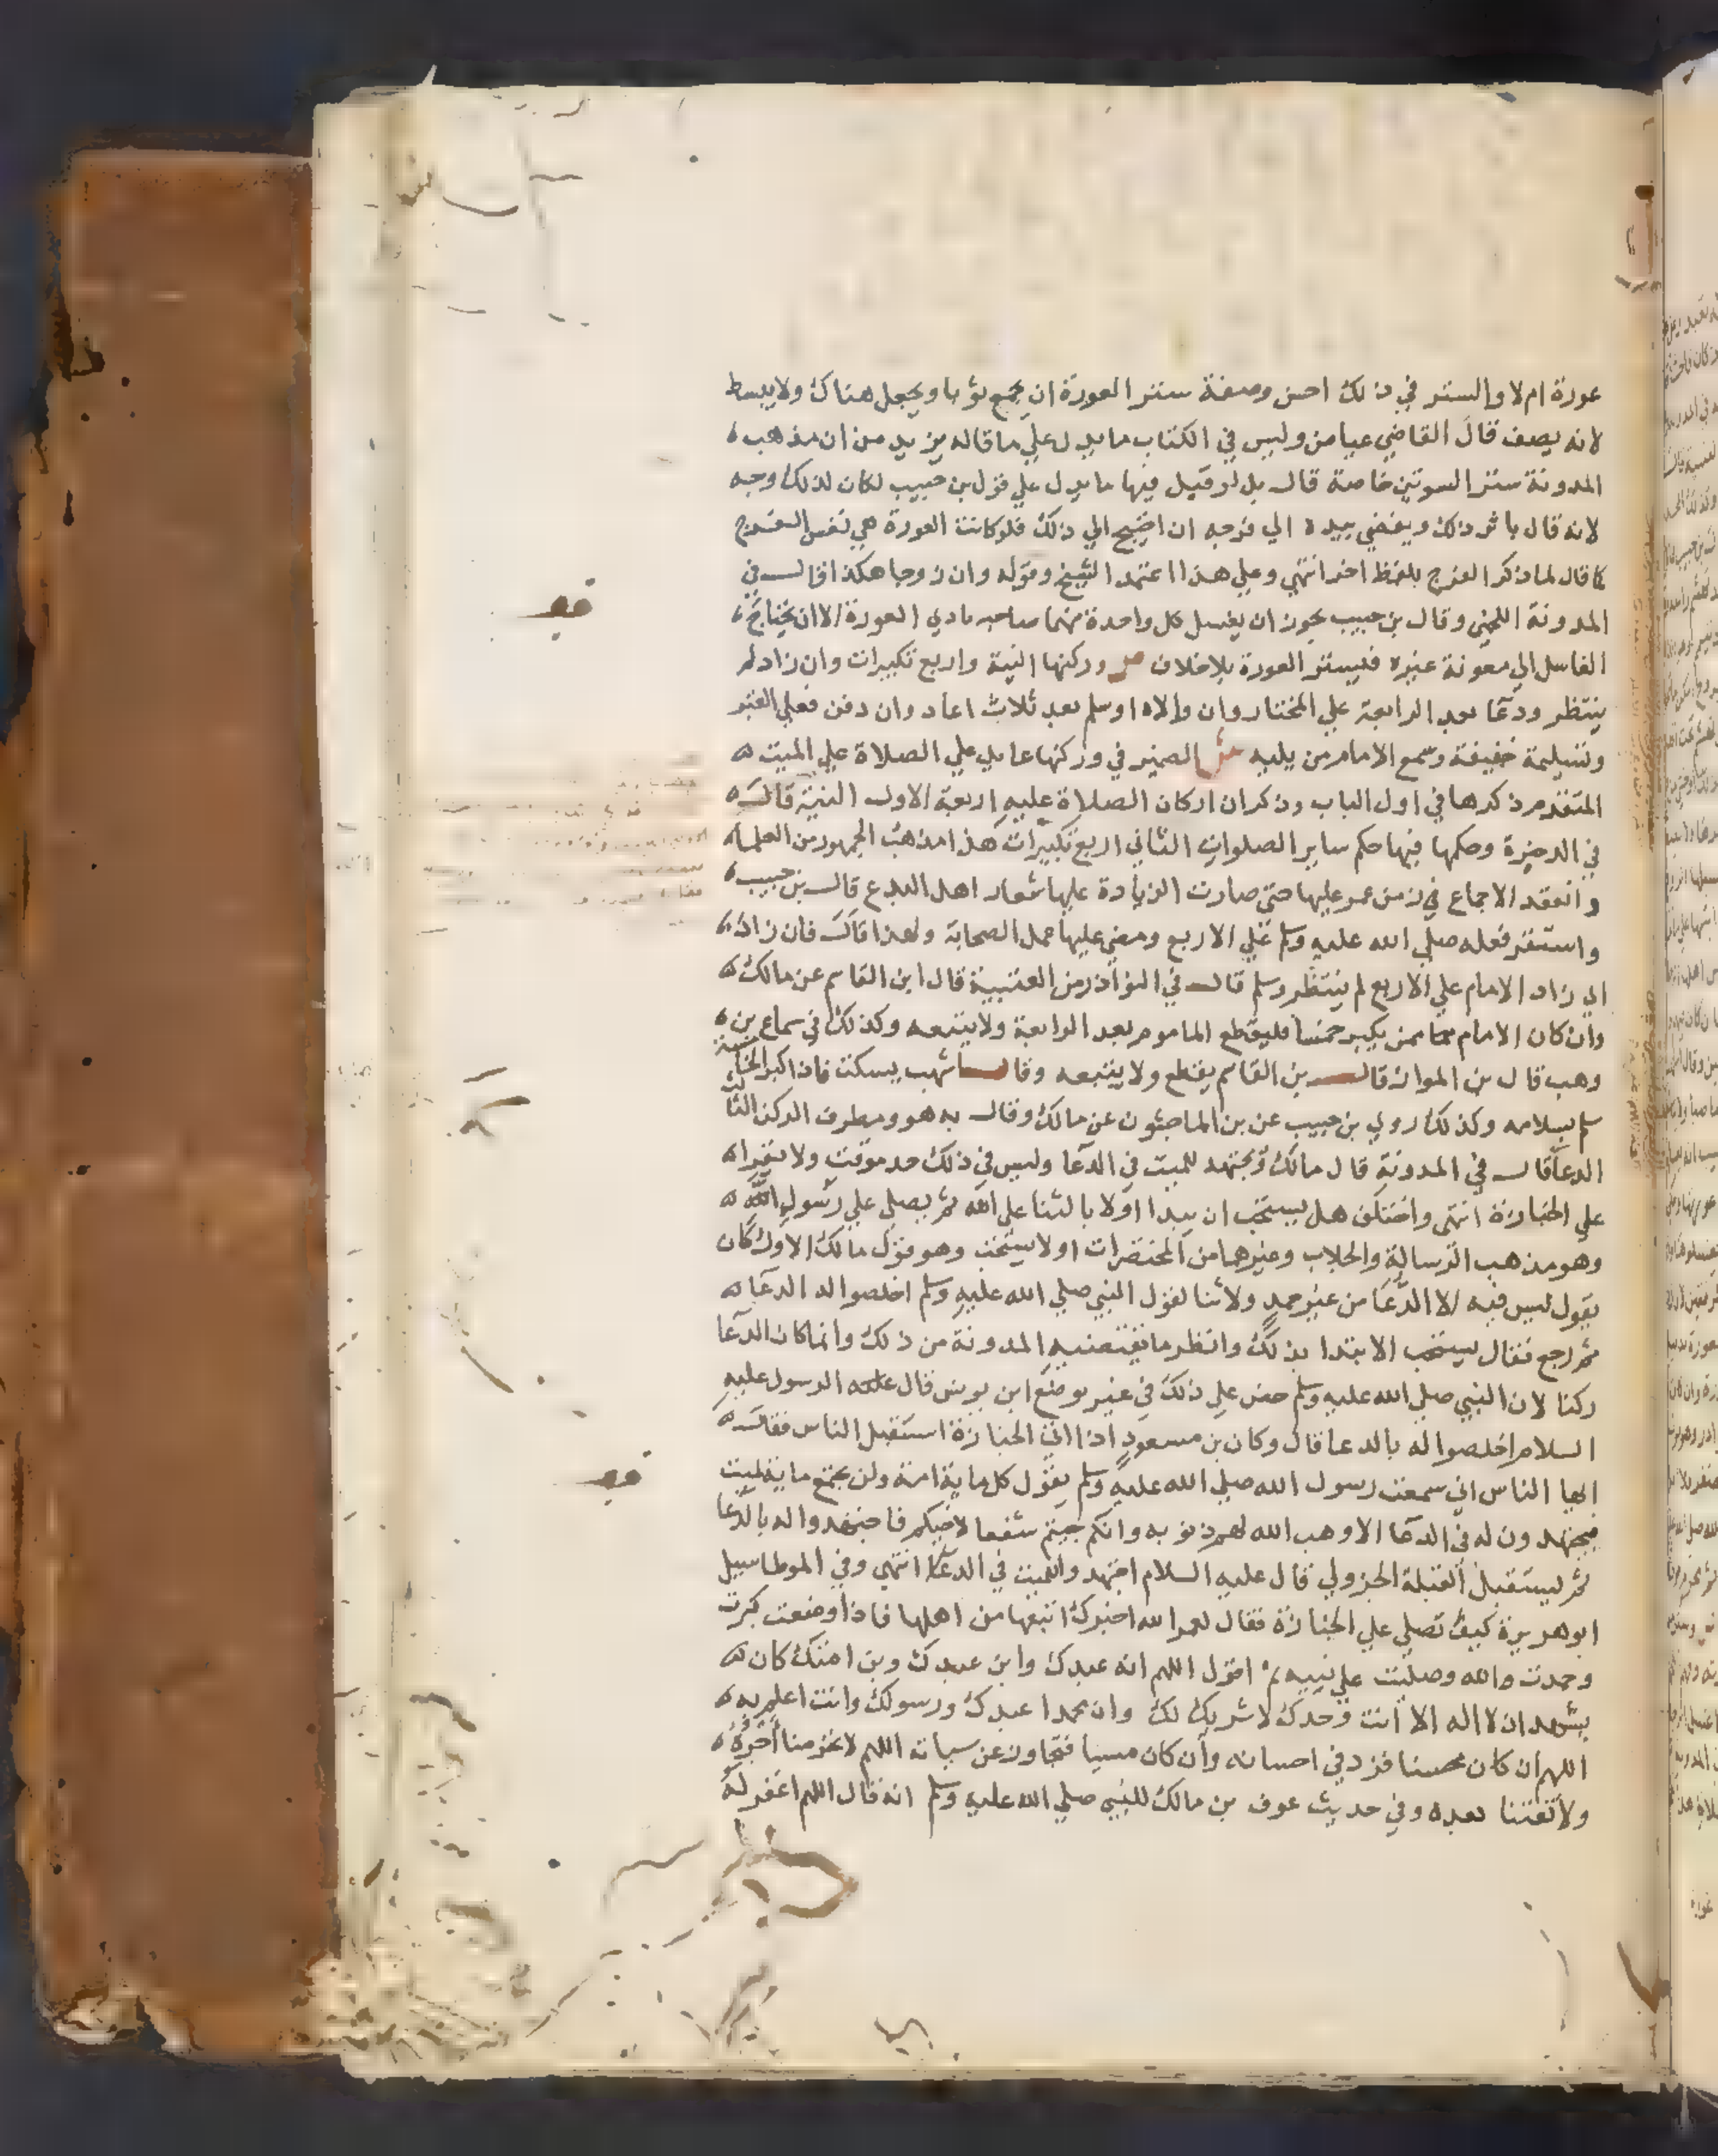 عورة ام لا والستر في ذلك احسن وصفة ستر العورة ان يجمع ثوبا ويجعل هناك ولا يبسط
لانه يصف قال القاضي عياض وليس في الكتاب ما يدل علي ما قاله من ان مذهب
المدونة ستر السوتين خاصة قال بل لو قيل فيها ما يدل علي قول بن حبيب لكان لذلك وجه
لانه قال باثر ذلك ويفضي بيده الي فرجه ان احتيج الي ذلك فلو كانت العورة هي نفس الفرج
كما قال لما ذكر الفرج بلفظ اخر انتهي وعلي هذا اعتمد الشيخ وقوله وان زوجا هكذا قال في
المدونة اللخمي وقال بن حبيب يجوز ان يغسل كل واحدة منهما صاحبه بادي العورة الا ان يحتاج
الغاسل الي معونة غيره فليستر العورة بلا خلاف ص وركنها النية واربع تكبيرات وان زاد لم
ينتظر ودعا بعد الرابعة علي المختار وان والاه او سلم بعد ثلاث اعاد وان دفن فعلي القبر
وتسليمة خفيفة وسمع الامام من يليه ش الضمير في وركنها عايد علي الصلاة علي الميت
المتقدم ذكرها في اول الباب وذكر ان اركان الصلاة عليه اربعة الاول النية قال
في الدخيرة وحكمها فيها حكم ساير الصلوات الثاني اربع تكبيرات هذا مذهب الجمهور من العلماء
وانعقد الاجماع في زمن عمر عليها حتي صارت الزيادة عليها شعار اهل البدع قال بن حبيب
واستقر فعله صلي الله عليه وسلم علي الاربع ومضي عليها عمل الصحابة ولهذا قال فان زاد
اي زاد الامام علي الاربع لم ينتظر وسلم قال في النوادر من العتبية قال ابن القاسم عن مالك
وان كان الامام ممن يكبر خمسا فليقطع الماموم بعد الرابعة ولا يتبعه وكذلك في سماع بن
وهب قال بن المواز قال بن القاسم يقطع ولا يتبعه وقال اشهب يسكت فاذا كبر الخامسة
سلم بسلامه وكذلك روي بن حبيب عن بن الماجشون عن مالك وقال به هو ومطرف الركن الثالث
الدعا قال في المدونة قال مالك ويجتهد للميت في الدعا وليس في ذلك حد موقت ولا يقرا
علي الجنازة انتهي واختلف هل يستحب ان يبدا اولا بالثنا علي الله ثم يصلي علي رسول الله
وهو مذهب الرسالة والجلاب وغيرهما من المختصرات او لا يستحب وهو قول مالك الاول كان
يقول ليس فيه الا الدعا من غير حمد ولا ثنا لقول النبي صلي الله عليه وسلم اخلصوا له الدعا
ثم رجع فقال يستحب الابتدا بذلك وانظر ما يقتضيه المدونة من ذلك وانما كان الدعا
ركنا لان النبي صلي الله عليه وسلم حض علي ذلك في غير موضع ابن يونس قال الرسول عليه
السلام اخلصوا له بالدعا قال وكان بن مسعود اذا اتي الجنازة استقبل الناس فقال
ايها الناس اني سمعت رسول الله صلي الله عليه وسلم يقول كل ماية امة ولن يجتمع ماية لميت
فيجتهدون له في الدعا الا وهب الله لهم ذنوبه وانكم جيتم شفعا لاخيكم فاجتهدوا له بالدعا
ثم يستقبل القبلة الجزولي قال عليه السلام اجتهدوا للميت في الدعا انتهي وفي الموطا سيل
ابو هريرة كيف تصلي علي الجنازة فقال لعمر الله اخبرك اتبعها من اهلها فاذا وضعت كبرت
وحمدت والله وصليت علي نبيه ثم اقول اللهم انه عبدك وابن عبدك وبن امتك كان
يشهد ان لا اله الا انت وحدك لا شريك لك وان محمدا عبدك ورسولك وانت اعلم به
اللهم ان كان محسنا فزد في احسانه وان كان مسيا فتجاوز عن سياته اللهم لا تحرمنا اجره
ولا تفتنا بعده وفي حديث عوف بن مالك للنبي صلي الله عليه وسلم انه قال اللهم اغفر له
قف
قف